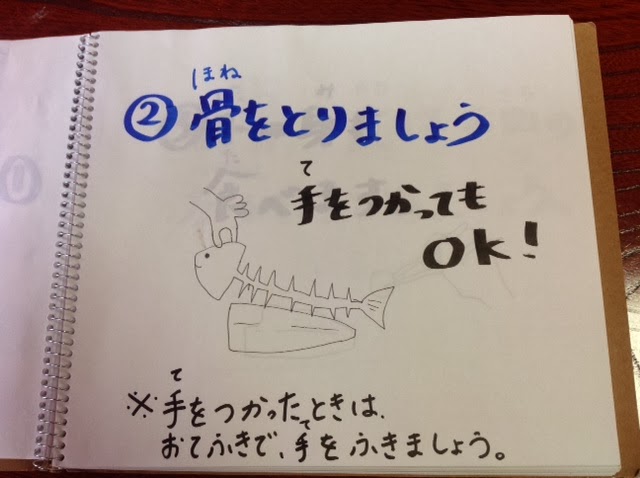 ほね
②骨をとりましょう
て
手をつかっても
OK!
て
※手をつかったときは、
て
おてふきで、手をふきましょう。